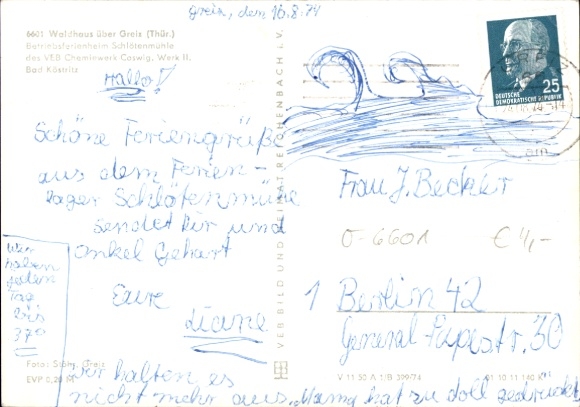 Greiz, den 16.8.74
6601 Waldhaus über Greiz (Thür.)
Betriebsferienheim Schlötenmühle
des VEB Chemiewerk Coswig, Werk II.
Bad Köstritz
Hallo!
Schöne Feriengrüße
aus dem Ferien-
lager Schlötenmühle
sendet für und
Onkel Gehart
Eure
Liane
Wir
haben
jeden
Tag
bis
37°
Wir halten es
nicht mehr aus, Mama hat zu doll gedrückt
Foto: Stöhr, Greiz
EVP 0,20 M
VEB BILD UND HEIMAT REICHENBACH i. V.
25
DEUTSCHE
DEMOKRATISCHE REPUBLIK
Frau J. Becker
O-6601 € 4,-
1 Berlin 42
General-Papestr. 30
V 11 50 A 1/B 399/74 01 10 11 140